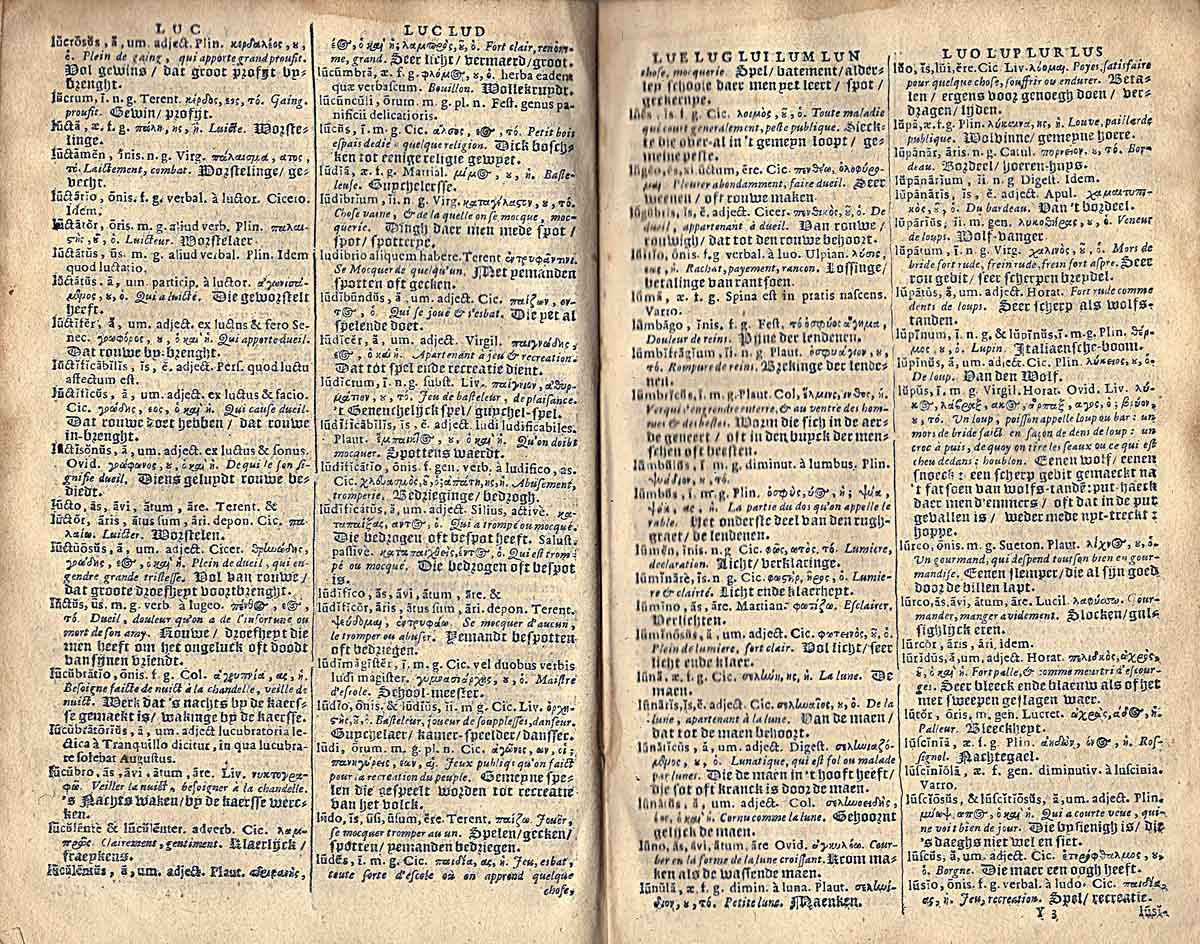 LUC
lūcrōsŭs, ă, um. adject. Plin. κερδαλέος, ȣ,
ὁ. Plein de gaing, qui apporte grand proufit.
Vol gewins / dat groot profijt by-
brenght.
lŭcrum, i. n. g. Terent. κέρδος, εος, τό. Gaing,
proufit. Gewin / profijt.
lūctă, æ. f. g. πάλη, ης, ἡ. Luicte. Worste-
linge.
lūctāmĕn, ĭnis. n. g. Virg. πάλαισμα, ατος,
τό. Luictement, combat. Worstelinge / ge-
vecht.
lūctātĭo, ōnis. f. g. verbal. à luctor. Cicero.
Idem.
lūctātŏr, ōris. m. g. aliud verb. Plin. παλαι-
ϛής, ȣ, ὁ. Luicteur. Worstelaer
lūctātŭs, ūs. m. g. aliud verbal. Plin. Idem
quod luctatio.
lūctātŭs, ă, um. particip. à luctor.
Qui a luicté. Die geworstelt
heeft.
lūctĭfĕr, ă, um. adject. ex luctus & fero Se-
nec. Qui apporte dueil.
Dat rouwe by-brenght.
lūctĭfĭcābĭlis, is, ĕ. adject. Perf. quod luctu
affectum est.
lūctĭfĭcus, ă, um. adject. ex luctus & facio.
Cic. Qui cause dueil.
Dat rouwe doet hebben / dat rouwe
in-brenght.
lūctĭsŏnŭs, ă, um. adject. ex luctus & sonus.
Ovid. De qui le son si-
gnifie dueil. Diens geluydt rouwe be-
diedt.
lūcto, ās, āvi, ātum, āre. Terent. &
lūctŏr, āris, ātus sum, āri. depon. Cic. πα-
λαίω. Luicter. Worstelen.
lūctŭōsŭs, ă, um. adject. Cicer. θρηνώδης,
Plein de dueil, qui en-
gendre grande tristesse. Vol van rouwe /
dat groote droefheyt voortbrenght.
lūctŭs, ūs. m. g. verb. à lugeo. πένθος, εος,
τό. Dueil, douleur qu'on a de l'infortune ou
mort de son amy. Rouwe / droefheyt die
men heeft om het ongeluck oft doodt
van sijnen vriendt.
lūcŭbrātĭo, ōnis. f. g. Col. ἀγρυπνία, ας, ἡ.
Besoigne faicte de nuict à la chandelle, veille de
nuict. Werk dat 's nachts by de kaers-
se gemaeckt is / wakinge by de kaersse.
lūcŭbrātōrĭŭs, ă, um. adject lucubratoria le-
ctica à Tranquillo dicitur, in qua lucubra-
re solebat Augustus.
lūcŭbro, ās, āvi, ātum, āre. Liv. νυκτογρα-
φῶ. Veiller la nuict, besoigner à la chandelle.
's Nachts waken / by de kaersse werc-
ken.
lūcŭlēntē & lūcŭlēntĕr. adverb. Cic. λαμ-
πρῶς. Clairement, gentiment. Klaerlijck /
fraeykens.
lūcŭlēntŭs, ă, um. adject. Plaut.
LUC LUD
ὁ καὶ ἡ; λαμπρὸς, ȣ, ὁ. Fort clair, renom-
mé, grand. Seer licht / vermaerd / groot.
lūcŭmbră, æ. f. g. φλόμος, ȣ, ὁ. herba eadem
quæ verbascum. Bouillon. Wollekruydt.
lūcŭncŭli, ōrum. m. g. pl. n. Fest. genus pa-
nificii delicatioris.
lūcŭs, i. m. g. Cic. ἄλσος, εος, τό. Petit bois
espais dedié à quelque religion. Dick bosch-
ken tot eenige religie gewyet.
lūdĭă, æ. f. g. Martial. Baste-
leuse. Guychelersse.
lūdībrĭum, ii. n. g. Virg.
Chose vaine, & de la quelle on se mocque, moc-
querie. Dingh daer men mede spot /
spot / spotterye.
ludibrio aliquem habere. Terent
Se Mocquer de quelqu'un. Met yemanden
spotten oft gecken.
lūdĭbūndŭs, ă, um. adject. Cic. παίζων, ον-
τος, ὁ. Qui se jouë & s'esbat. Die yet al
spelende doet.
lūdĭcĕr, ă, um. adject. Virgil. παιγνιώδης,
εος, ὁ καὶ ἡ. Apartenant à jeu & recreation.
Dat tot spel ende recreatie dient.
lūdĭcrum, i. n. g. subst. Liv.
Jeu de basteleur, de plaisance.
't Geneuchelijck spel / guychel-spel.
lūdĭfĭcābĭlis, is, ĕ. adject. ludi ludificabiles.
Plaut. Qu'on doibt
mocquer. Spottens waerdt.
lūdĭfĭcātĭo, ōnis. f. gen. verb. à ludifico, as.
Cic. Abusement,
tromperie. Bedrieginge / bedrogh.
lūdĭfĭcātŭs, ă, um. adject. Silius, activè.
Qui a trompé ou mocqué.
Die bedrogen oft bespot heeft. Salust.
passivè. Qui est trom-
pé ou mocqué. Die bedrogen oft bespot
is.
lūdĭfĭco, ās, āvi, ātum, āre. &
lūdĭfĭcŏr, āris, ātus sum, āri. depon. Terent.
Se mocquer d'aucun,
le tromper ou abuser. Yemandt bespotten
oft bedriegen.
lūdĭmăgistĕr, i. m. g. Cic. vel duobus verbis
ludi magister. Maistre
d'escole. School-meester.
lūdĭo, ōnis. & lūdĭus, ii. m. g. Cic. Liv.
Basteleur, joueur de soupplesses, danseur.
Guychelaer / kamer-speelder / dansser.
lūdi, ōrum. m. g. pl. n. Cic.
Jeux publics qu'on faict
pour la recreation du peuple. Gemeyne spe-
len die gespeelt worden tot recreatie
van het volck.
lūdo, is, ūsi, ūsum, ĕre. Terent. παίζω. Jouër,
se mocquer tromper au un. Spelen / gecken /
spotten / yemanden bedriegen.
lūdŭs, i. m. g. Cic. παιδία, ας, ἡ. Jeu, esbat,
toute sorte d'escole où on apprend quelque
chose,
LUE LUG LUI LUM LUN
chose, mocquerie. Spel / vatement / alder-
ley schoole daer men yet leert / spot /
geckernye.
lŭēs, is. f. g. Cic. λοιμὸς, ȣ, ὁ. Toute maladie
qui court generalement, peste publique. Sieck-
te die over-al in 't gemeyn loopt / ge-
meine peste.
lūgĕo, ēs, xi, ūctum, ēre. Cic.
Pleurer abondamment, faire dueil. Seer
weenen / oft rouwe maken
lūgŭbris, is, ĕ. adject. Cicer. De
dueil, appartenant à dueil. Van rouwe /
rouwigh / dat tot den rouwe behoort.
lŭitĭo, ōnis. f. g. verbal. à luo. Ulpian. λύσις,
εως, ἡ. Rachat, payement, rancon. Lossinge /
betalinge van rantsoen.
lūmă, æ. f. g. Spina est in pratis nascens.
Varro.
lūmbāgo, ĭnis. f. g. Fest.
Douleur de reins. Pijne der lendenen.
lūmbĭfrăgĭum, ii. n. g. Plaut.
τό. Rompure de reins. Brekinge der lende-
nen.
lūmbrīcŭs, i. m. g. Plaut. Col. ἕλμινς, ινθος, ἡ.
Ver qui s'engendre en terre, & au ventre des hom-
mes & des bestes. Worm die sich in de aer-
de geneert / oft in den buyck der men-
schen oft beesten.
lūmbŭlŭs, i. m. g. diminut. à lumbus. Plin.
lūmbŭs, i. m. g. Plin.
La partie du dos qu'on appelle le
rable. Het onderste deel van den rugh-
graet / de lendenen.
lūmĕn, ĭnis. n. g Cic. φῶς, ωτὸς, τό. Lumiere,
declaration. Licht / verklaringe.
lūmĭnārĕ, is. n. g Cic. φωστήρ, ῆρος, ὁ. Lumie-
re & clairté. Licht ende klaerheyt.
lūmĭno, ās, āre. Martian. φωτίζω. Esclairer.
Verlichten.
lūmĭnōsŭs, ă, um. adject. Cic. φωτεινὸς, ȣ, ὁ.
Plein de lumiere, fort clair. Vol licht / seer
licht ende klaer.
lūnă, æ. f. g. Cic. σελήνη, ης, ἡ. La lune. De
maen.
lūnāris, is, ĕ. adject. Cic. De la
lune, apartenant à la lune. Van de maen /
dat tot de maen behoort.
lūnātĭcŭs, ă, um. adject. Digest.
Lunatique, qui est fol ou malade
par lunes. Die de maen in 't hooft heeft /
die sot oft kranck is door de maen.
lūnātŭs, ă, um. adject. Col. σεληνοειδὴς,
έος, ὁ καὶ ἡ. Cornu comme la lune. Gehoornt
gelijck de maen.
lūno, ās, āvi, ātum, āre Ovid. Cour-
ber en la forme de la lune croissant. Krom ma-
ken als de wassende maen.
lūnŭlă, æ. f. g. dimin. à luna. Plaut.
Petite lune. Maenken.
LUO LUP LUR LUS
lŭo, is, lŭi, ĕre. Cic. Liv. Payer, satisfaire
pour quelque chose, souffrir ou endurer. Beta-
len / ergens voor genoegh doen / ver-
dragen / lijden.
lŭpă, æ. f. g. Plin. λύκαινα, ης, ἡ. Louve, paillarde
publique. Wolvinne / gemeyne hoere.
lŭpānăr, āris. n. g. Catul. πορνεῖον, ȣ, τό. Bor-
deau. Bordeel / hoeren-huys.
lŭpānārĭum, ii n. g. Digest. Idem.
lŭpānāris, is, ĕ. adject. Apul. χαμαιτυπι-
κὸς, ȣ, ὁ. Du bardeau. Van 't bordeel.
lŭpārĭŭs, ii. m. gen. λυκοθήρας, ȣ, ὁ. Veneur
de loups. Wolf-vanger.
lŭpātum, i. n. g. Virg. χαλινὸς, ȣ, ὁ. Mors de
bride fort rude, frein rude, frein fort aspre. Seer
rou gebit / seer scherpen breydel.
lŭpātŭs, ă, um. adject. Horat. Fort rude comme
dents de loups. Seer scherp als wolfs-
tanden.
lŭpīnum, i. n. g. & lŭpīnŭs, i. m. g Plin. θέρ-
μος, ȣ, ὁ. Lupin. Italiaensche-boom.
lŭpīnŭs, ă, um. adject. Cic. Plin. λύκειος, ȣ, ὁ.
De loup. Van den Wolf.
lŭpŭs, i. m. g. Virgil. Horat. Ovid. Liv. λύ-
κος, λάβραξ, ακος, ἅρπαξ, αγος, ὁ; βρύον,
ȣ, τό. Un loup, poisson appelle loup ou bar: un
mors de bride faict en façon de dens de loup: un
croc à puis, de quoy on tire les seaux ou ce qui est
cheu dedans: houblon. Eenen wolf / eenen
snoeck: een scherp gebit gemaeckt na
't fatsoen van wolfs-tandē: put-haeck
daer men d'emmers / oft dat in de put
gevallen is / weder mede uyt-treckt:
hoppe.
lŭrco, ōnis. m. g. Sueton. Plaut. λίχνος, ȣ, ὁ.
Un gourmand, qui despend tout son bien en gour-
mandise. Eenen slemper / die al sijn goed
door de billen lapt.
lŭrco, ās, āvi, ātum, āre. Lucil. λαφύσσω. Gour-
mander, manger avidement. Slocken / gul-
sighlijck eten.
lŭrcŏr, āris, āri, idem.
lūrĭdŭs, ă, um. adject. Horat.
Fort palle, & comme meurtri d'escour-
gees. Seer bleeck ende blaeuw als of het
met sweepen geslagen waer.
lūrŏr, ōris. m. g. Lucret.
Palleur. Bleeckheyt.
lūscĭnĭă, æ. f. g. Plin. ἀηδὼν, όνος, ἡ. Ros-
signol. Nachtegael.
lūscĭnĭŏlă, æ. f. gen. diminutiv. à luscinia.
Varro.
lūscĭōsŭs, & lūscĭtĭōsŭs, ă, um. adject. Plin.
μύωψ, ωπος, ὁ καὶ ἡ. Qui a courte veue, qui-
ne voit bien de jour. Die bysienigh is / die
's daeghs niet wel en siet.
lūscŭs, ă, um. adject. Cic. ἑτερόφθαλμος, ȣ,
ὁ. Borgne. Die maer een oogh heeft.
lūsĭo, ōnis. f. g. verbal. à ludo. Cic. παιδία,
ας, ἡ. Jeu, recreation. Spel / recreatie.
Y 3
lūsĭ-